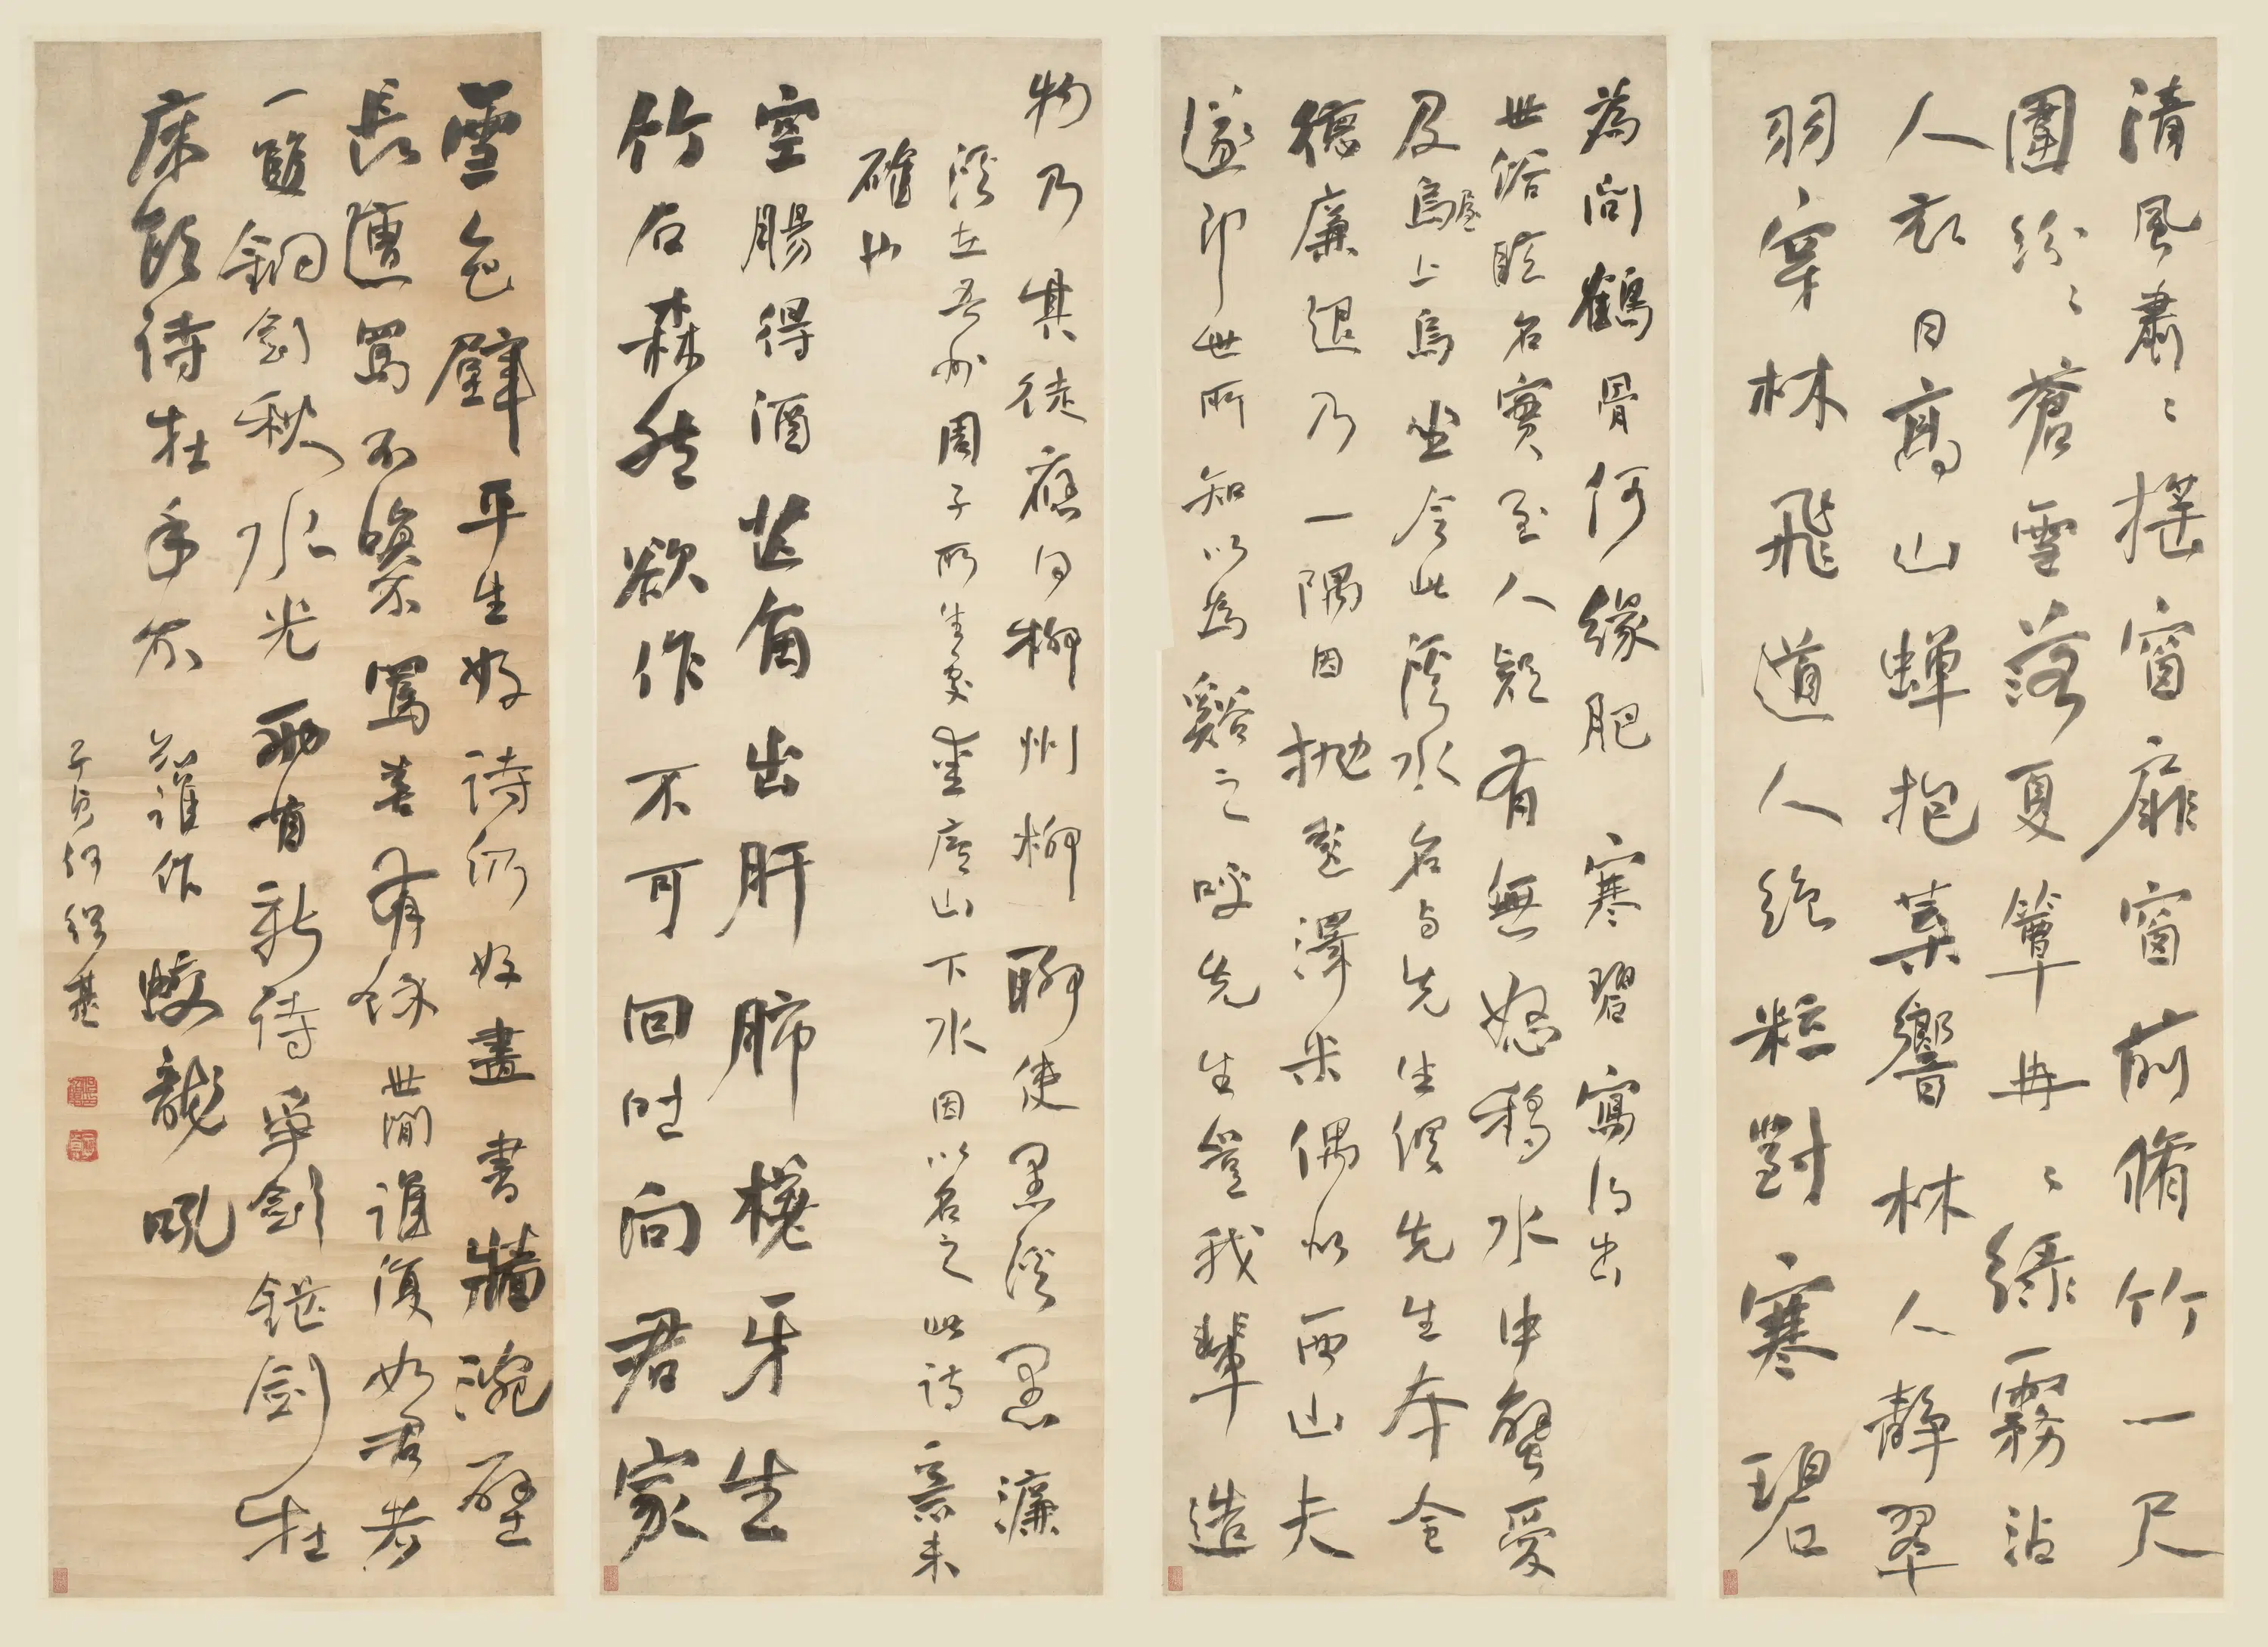 清風肅〻搖窗扉窗前脩竹一尺
圍紛〻蒼雪落夏簟冉〻綠霧沾
人衣日高山蟬抱葉響林人靜翠
羽穿林飛道人絕粒對寒碧
為問鶴骨何緣肥 寒碧寫得出
世俗眩名實至人疑有無怒移水中蟹愛
及烏屋上烏坐令此溪水名與先生俱先生本全
德廉退乃一隅因拋彭澤米偶似西山夫
遂即世所知以為谿之呼先生豈我輩造
物乃其徒應同柳州柳聊使愚溪愚 濂
溪在吾州周子所生處廬山下水因以名之此詩意未
確也
空腸得酒芒角出肝肺槎牙生
竹石森然欲作不可回吐向君家
雪色壁平生好詩仍好畫書牆涴壁
長遭罵不嗔不罵喜有餘世間誰復如君者
一雙銅劍秋水光兩首新詩爭劍鋩劍在
床頭詩在手不知誰作蛟龍吼
子貞何紹基